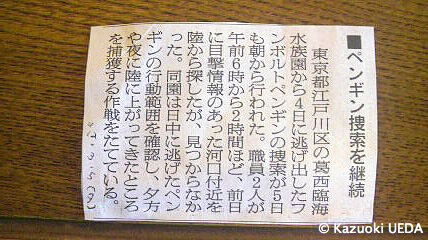 ■ペンギン捜索を継続
東京都江戸川区の葛西臨海
水族園から4日に逃げ出したフ
ンボルトペンギンの捜索が5日
も朝から行われた。職員2人が
午前6時から2時間ほど、前日
に目撃情報のあった河口付近を
陸から探したが、見つからなか
った。同園は日中に逃げたペン
ギンの行動範囲を確認し、夕方
や夜に陸に上がってきたところ
を捕獲する作戦をたてている。
© Kazuoki UEDA